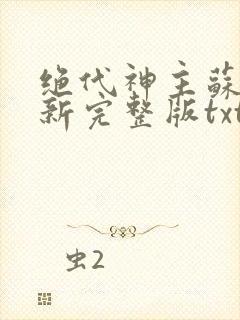 绝代神主蘇
新完整版txt
虫2